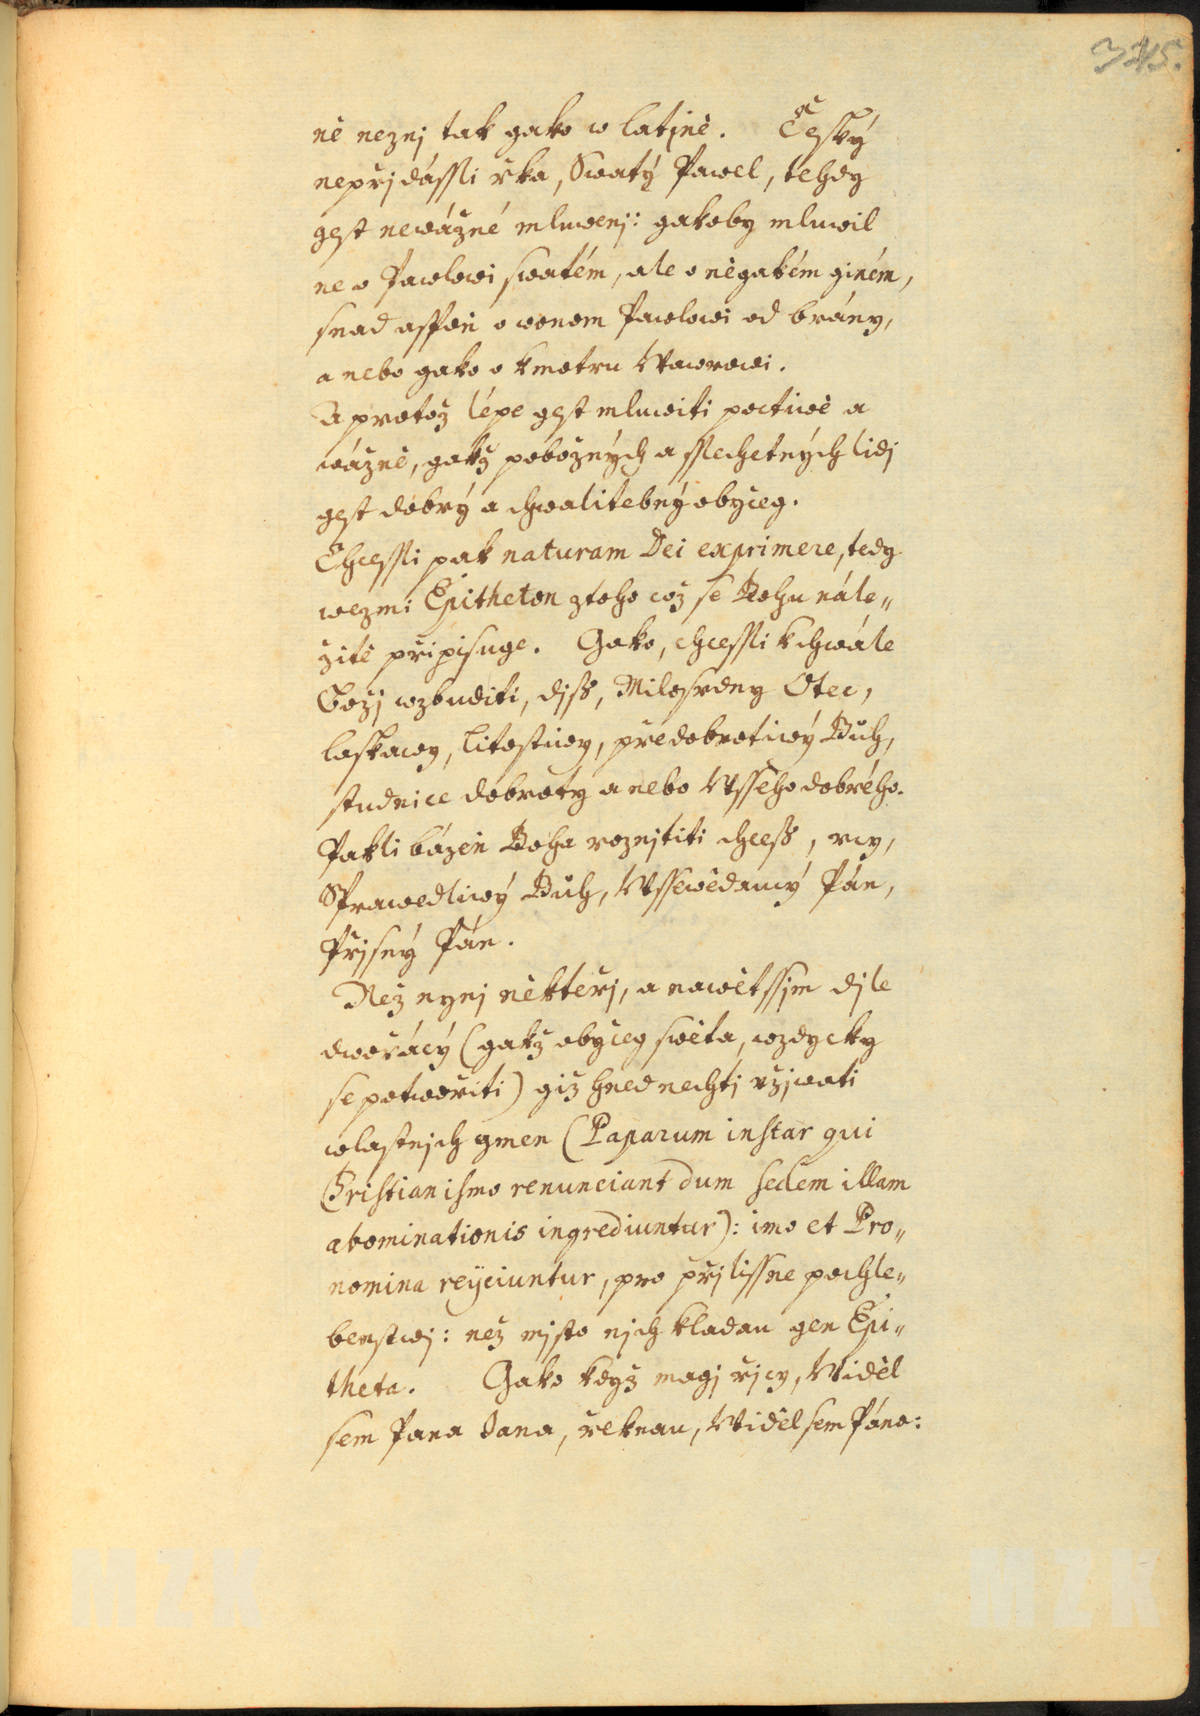 345.
ně neznj tak gako w latině. Český
nepřidássli řka, Swatý Pawel, tehdy
gest newážné mluwenj: gakoby mluwil
ne o Pawlowi swatém, ale o něgakém giném,
snad aspoň o wonom Pawlowi od brány,
a nebo gako o kmotru Wawrowi.
A protož lépe gest mluwiti poctiwě a
wážně, gakž pobožných a sslechetných lidj
gest dobrý a chwalitebný obyčeg.
Chcessli pak naturam Dei exprimere, tedy
wezmi Epitheton z toho což se Bohu nále„
žitě připisuge. Gako, chcessli k chwále
Božj wzbuditi, djss, Milosrdny Otec,
laskawy, litostiwy, předobrotiwý Bůh,
studnice dobroty a nebo Wsseho dobrého.
Pakli bázeň Boha roznjtiti chcess, rcy,
Sprawedliwý Bůh, Wssewědaucý Pán,
Přjsný Pán.
Než nynj někteřj, a nawětssjm djle
dwořácý (gakž obyceg swěta, wzdycky
se potwořiti) giž hned nechtj vžjwati
wlastnjch gmen (Paparum instar qui
Christianismo renunciant dum sedem illam
abominationis ingrediuntur): imo et Pro„
nomina reijciuntur, pro přjlissne pochle„
benstwj: než mjsto njch kladau gen Epi„
theta. Gako když magj řjcy, Widěl
sem Pana Jana, řeknau, Widěl sem Páně:
MZK MZK